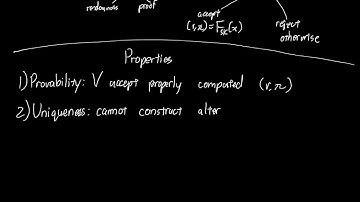 randomness proof
accept
(r,π)=F_SK(x)
reject
otherwise
Properties
1) Provability: V accept properly computed (r,π)
2) Uniqueness: cannot construct alter